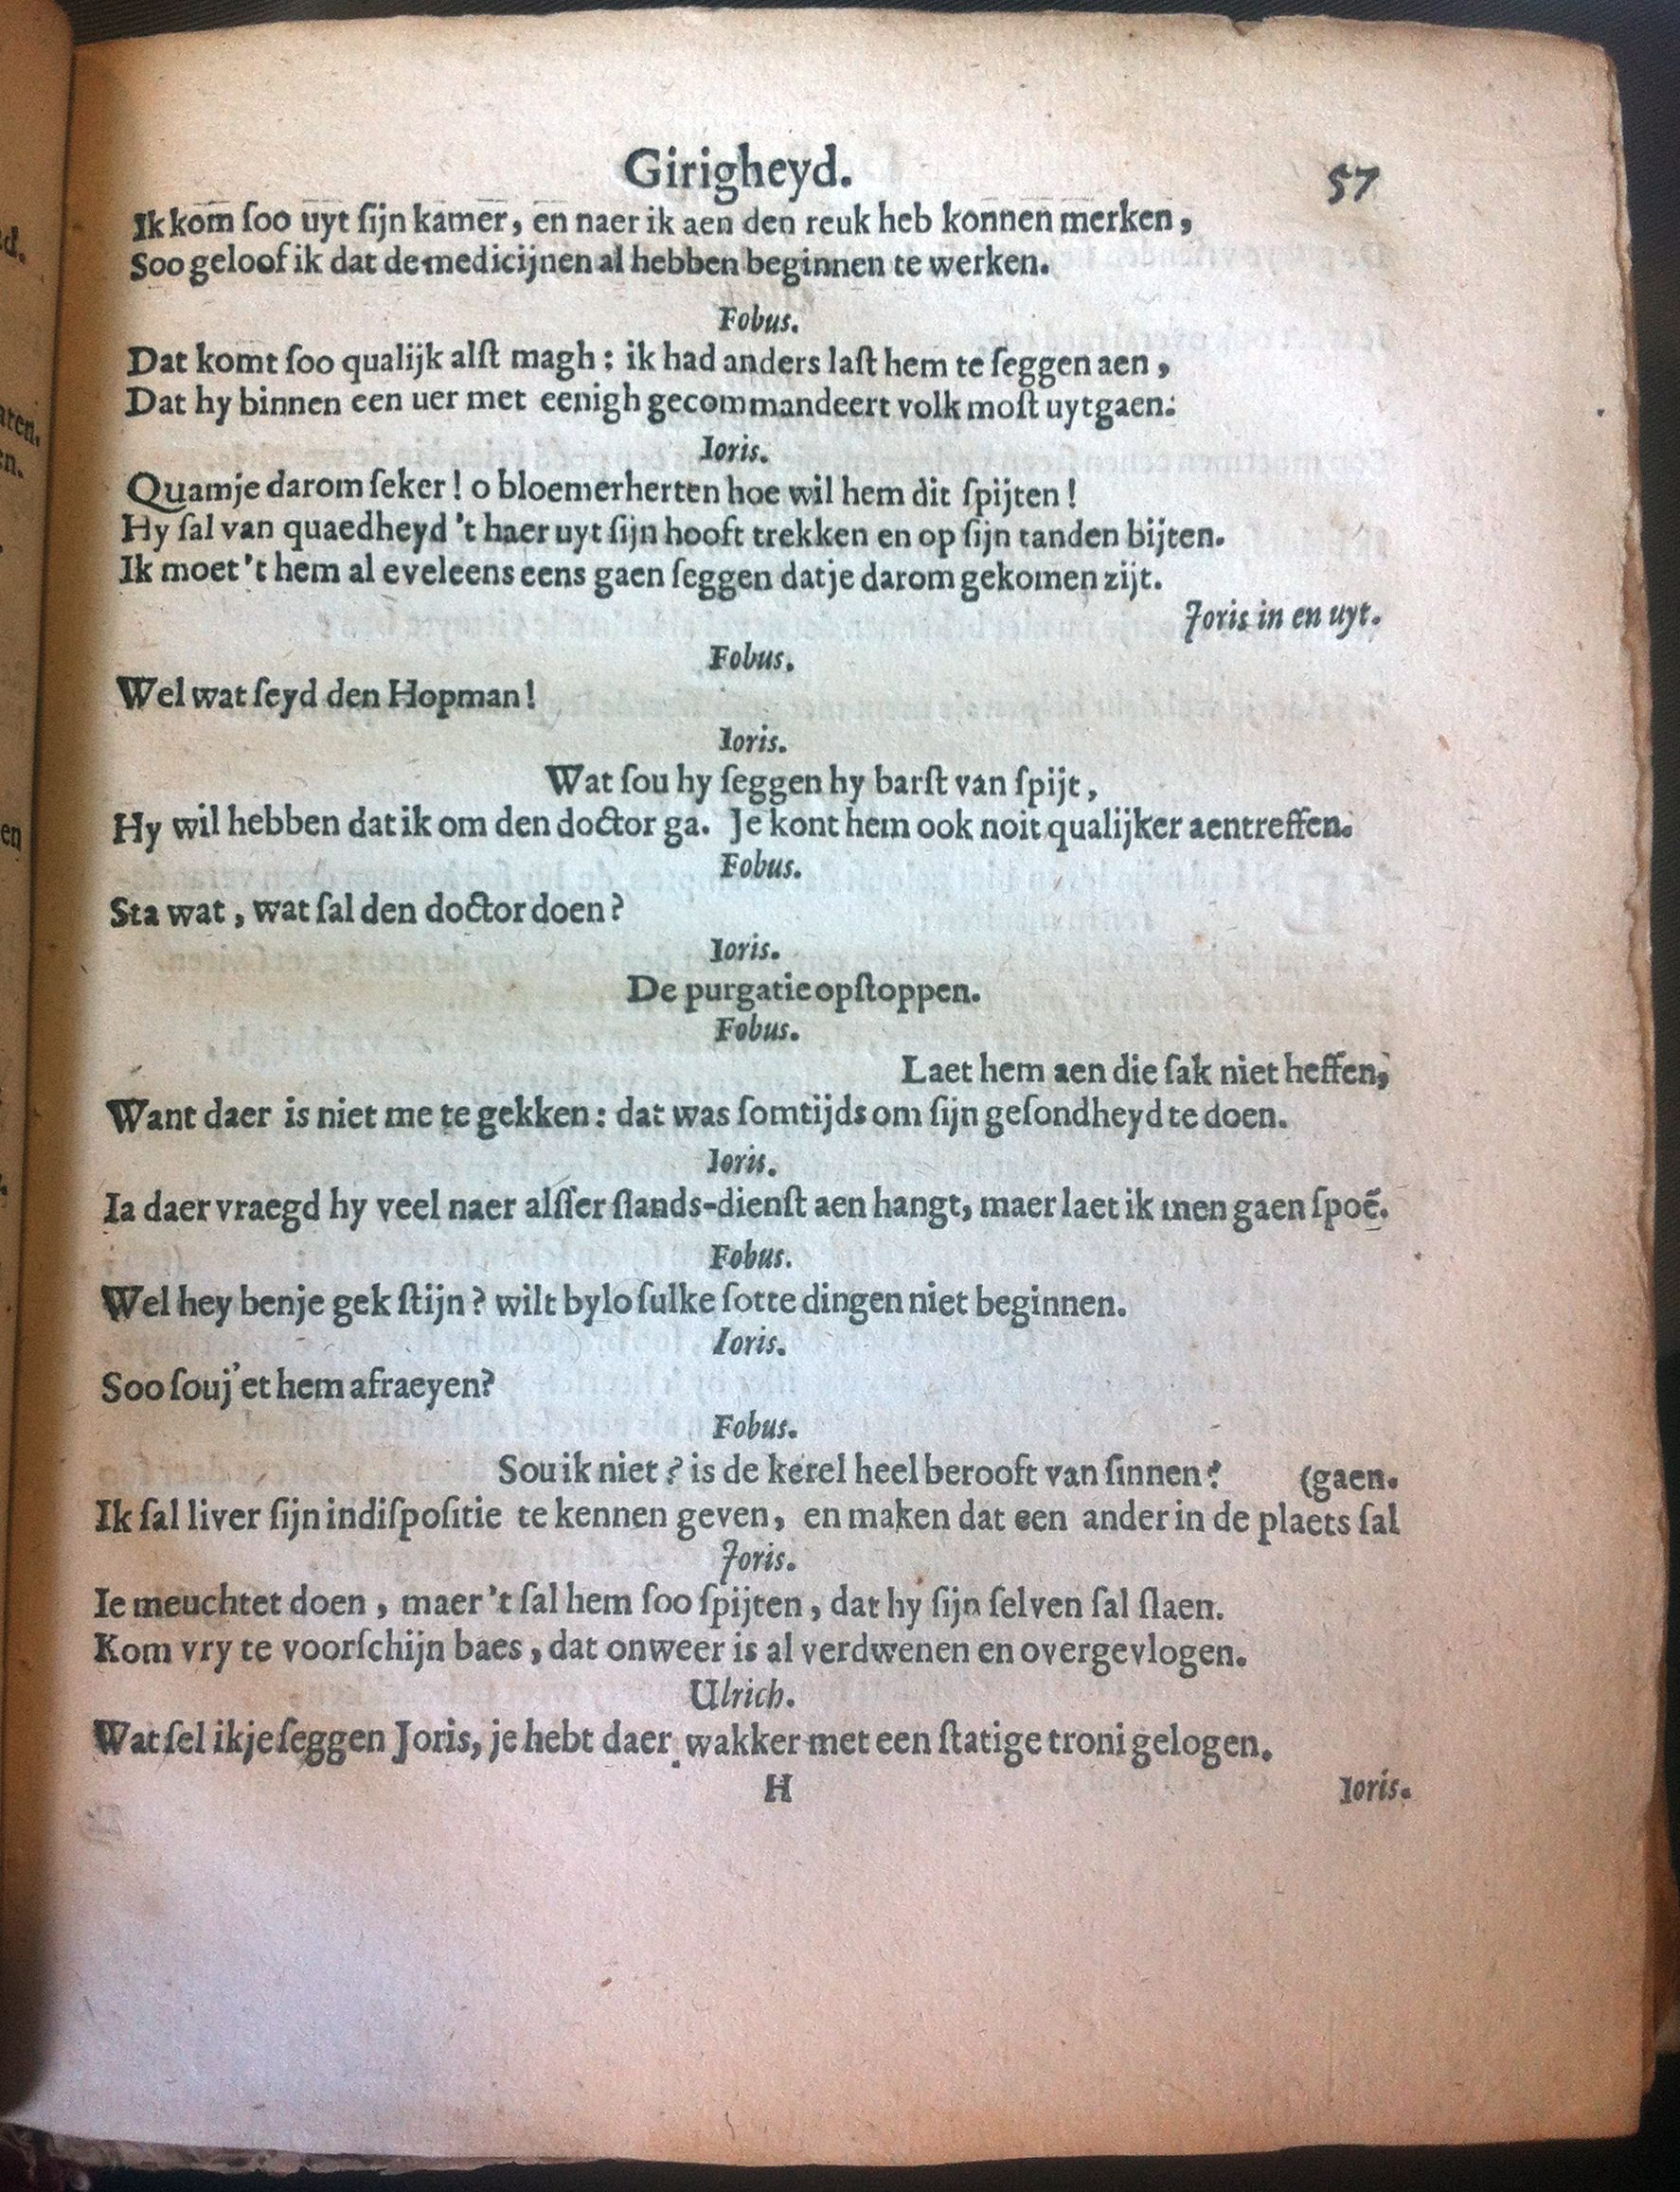 Girigheyd. 57
Ik kom ſoo uyt ſijn kamer, en naer ik aen den reuk heb konnen merken,
Soo geloof ik dat de medicijnen al hebben beginnen te werken.
Fobus.
Dat komt ſoo qualijk alſt magh: ik had anders laſt hem te ſeggen aen,
Dat hy binnen een uer met eenigh gecommandeert volk moſt uytgaen:
Ioris.
Quamje darom ſeker! o bloemerherten hoe wil hem dit ſpijten!
Hy ſal van quaedheyd 't haer uyt ſijn hooft trekken en op ſijn tanden bijten.
Ik moet 't hem al eveleens eens gaen ſeggen datje darom gekomen zijt.
Joris in en uyt.
Fobus.
Wel wat ſeyd den Hopman!
Ioris.
Wat ſou hy ſeggen hy barſt van ſpijt,
Hy wil hebben dat ik om den doctor ga. Je kont hem ook noit qualijker aentreffen.
Fobus.
Sta wat, wat ſal den doctor doen?
Ioris.
De purgatie opſtoppen.
Fobus.
Laet hem aen die ſak niet heffen,
Want daer is niet me te gekken: dat was ſomtijds om ſijn geſondheyd te doen.
Ioris.
Ia daer vraegd hy veel naer alſſer ſlands-dienſt aen hangt, maer laet ik men gaen ſpoē.
Fobus.
Wel hey benje gek ſtijn? wilt bylo ſulke ſotte dingen niet beginnen.
Ioris.
Soo ſouj'et hem afraeyen?
Fobus.
Sou ik niet? is de kerel heel berooft van ſinnen? (gaen.
Ik ſal liver ſijn indiſpoſitie te kennen geven, en maken dat een ander in de plaets ſal
Joris.
Ie meuchtet doen, maer 't ſal hem ſoo ſpijten, dat hy ſijn ſelven ſal ſlaen.
Kom vry te voorſchijn baes, dat onweer is al verdwenen en overgevlogen.
Ulrich.
Wat ſel ikje ſeggen Joris, je hebt daer wakker met een ſtatige troni gelogen.
H Ioris.